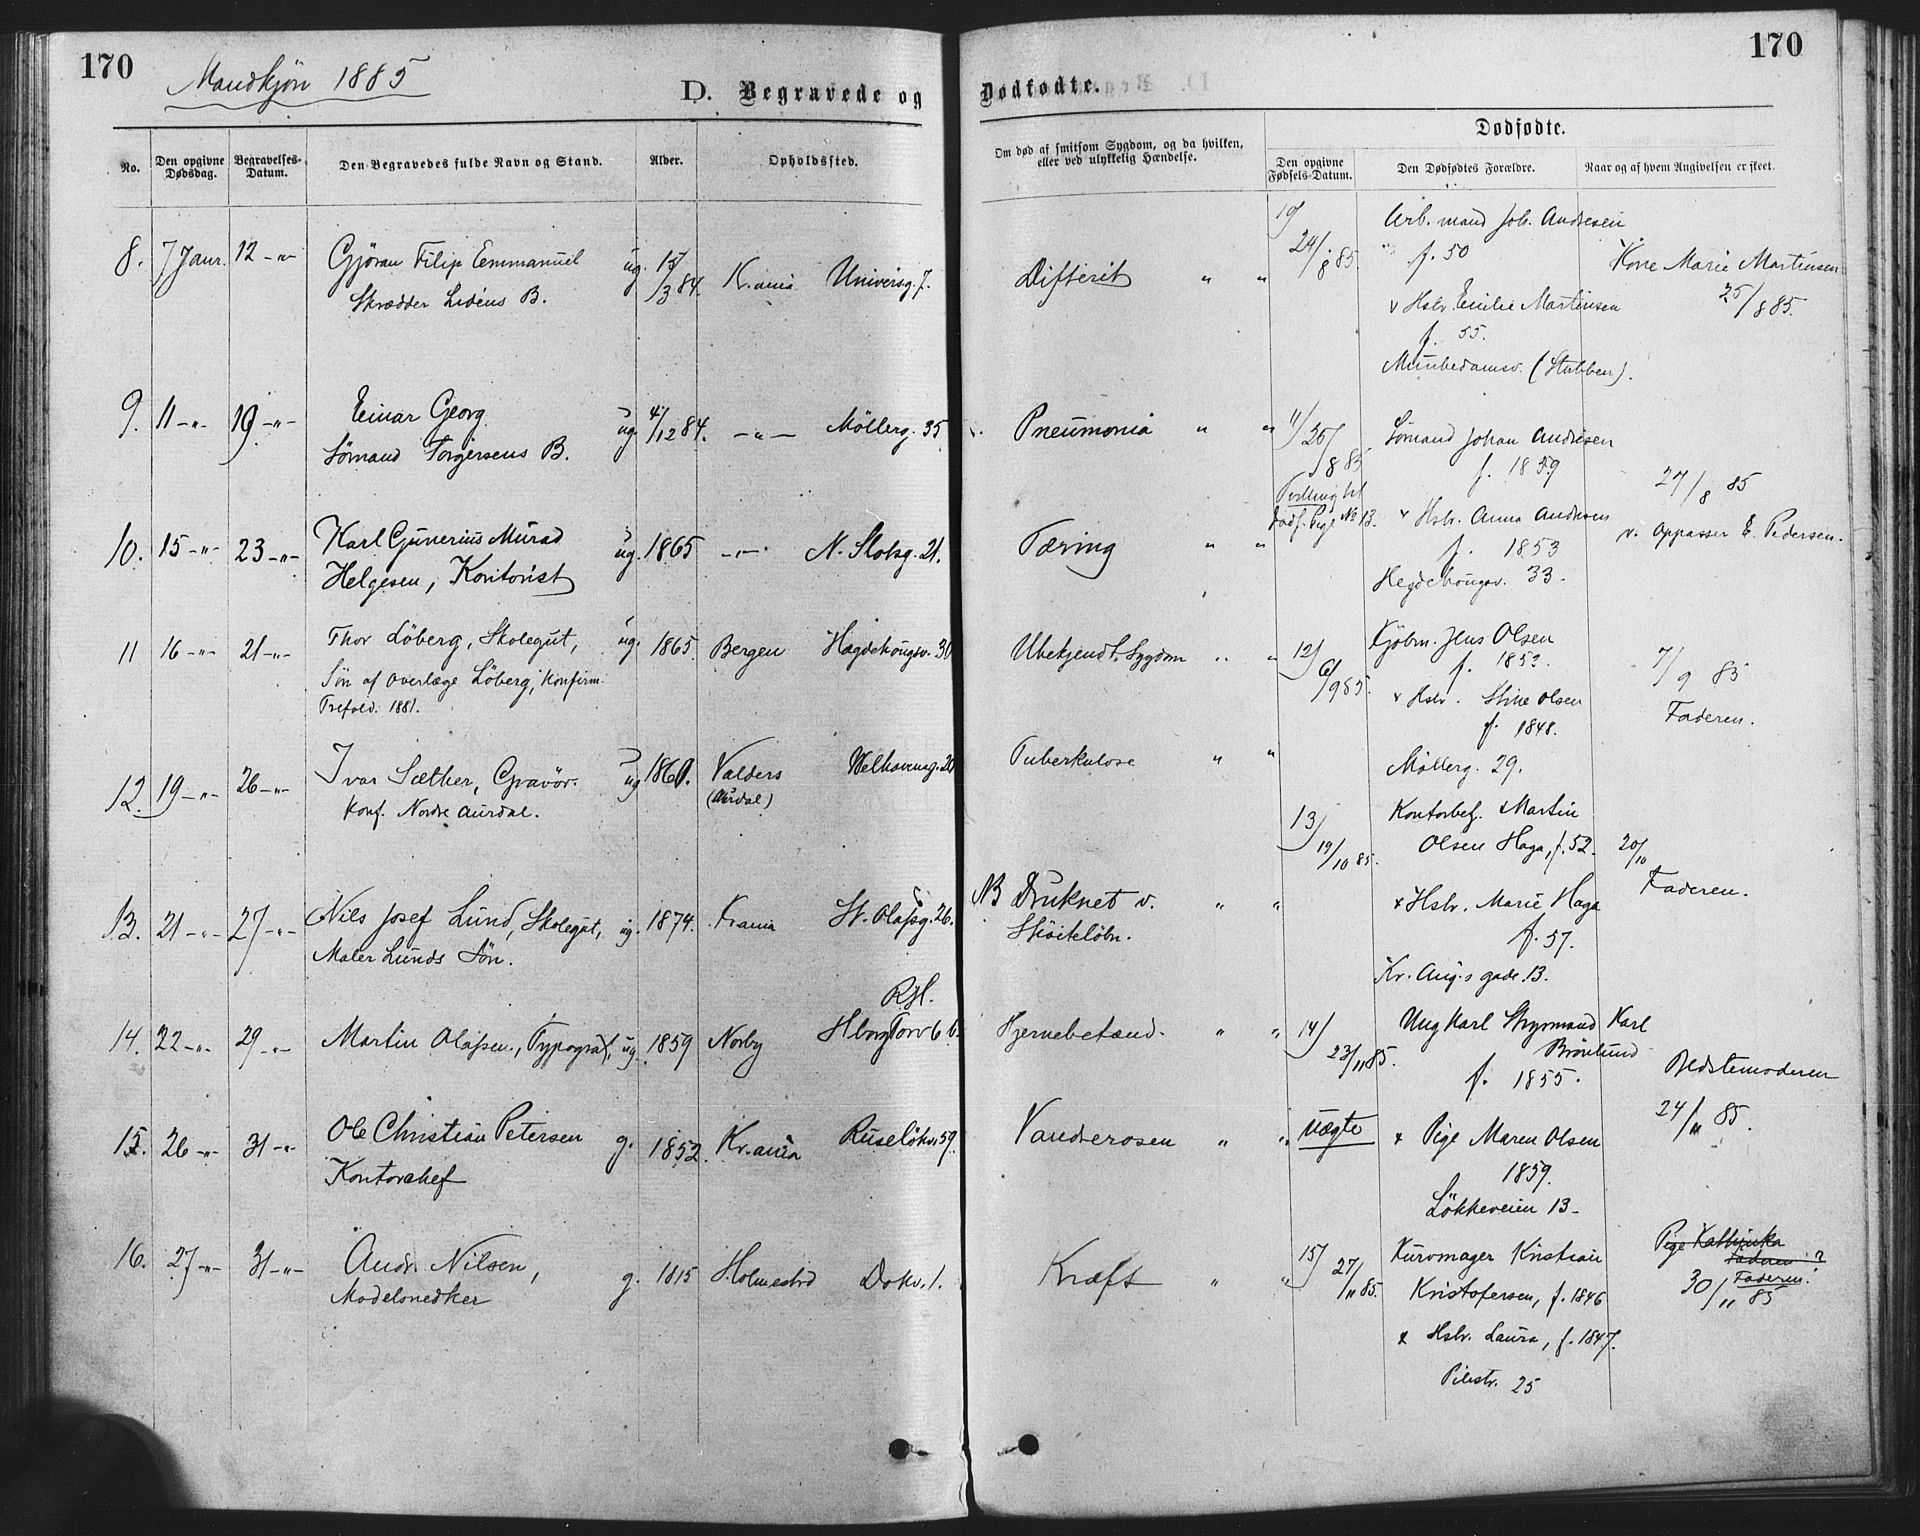 170
Mandkjøn 1885
D. Begravede og
No.
Den opgivne Dødsdag.
Begravelses-Datum.
Den Begravedes fulde Navn og Stand.
Alder.
Opholdssted.
8. 7 Janr. 12 -"- Gjøran Filip Emmanuel ug. 15/3 84. Kr.ania Universg. 7.
Skrædder Lidéns B.
9. 11 -"- 19 -"- Einar Georg ug. 4/12 84. -"- Møllerg. 35
Sømand Torgersens B.
10. 15 -"- 23 -"- Karl Gunerius Murad ug. 1865 -"- N. Slotsg. 21.
Helgesen, Kontorist
11 16 -"- 21 -"- Thor Løberg, Skolegut, ug. 1865. Bergen Hægdehougsv. 30
Søn af Overlæge Løberg, Konfirm.
Trefold. 1881.
12. 19 -"- 26 -"- Ivar Sæther, Gravør. ug 1860. Valders Welhavensg. 20
Konf. Nordre Aurdal. (Aurdal)
13. 21 -"- 27 -"- Nils Josef Lund, Skolegut, ug. 1874. Krania St. Olafsg. 26.
Maler Lunds Søn.
14. 22 -"- 29 -"- Martin Olafsen, Typograf, ug. 1859 Norby
R.H.
H.borg Torv 6 b.
15. 26 -"- 31 -"- Ole Christian Petersen g. 1852. Kr.ania Ruseløkv. 59.
Kontorchef
16. 27 -"- 31 -"- Andr. Nilsen, g. 1815 Holmestrd Dokv. 1.
Modelsnedker
170
Dødfødte.
Om død af smitsom Sygdom, og da hvilken,
eller ved ulykkelig Hændelse.
Dødfødte.
Den opgivne Fødsels-Datum.
Den Dødfødtes Forældre.
Naar og af hvem Angivelsen er skeet.
Difterit " "
Pneumonia " "
Tæring " "
Ubekjendt Sygdom " "
Tuberkulose " "
NB Druknet v. " "
Skøiteløbn.
Hjernebetænd. " "
Vandrerosen " "
Kræft " "
10) 24/8 85. Arb. mand Joh. Andresen
f. 50
Kone Marie Martinsen
25/8 85.
& Hstr. Emilie Martinsen
f. 55.
Munkedamsv. (Stubben).
11) 26/8 85 Sømand Johan Andresen
f. 1859
Tvilling til
Dødf. Pige No 13.
27/8 85
& Hstr. Anna Andresen
v. Oppasser E. Pedersen.
f. 1853
Hegdehougsv. 33.
12) 6/9 85. Kjøbm. Jens Olsen
f. 1853.
7/9 85
& Hstr. Stine Olsen
Faderen.
f. 1848.
Møllerg. 29.
13) 19/10 85. Kontorbetj. Martin
Olsen Haga, f. 52. 20/10
Faderen.
& Hstr. Marie Haga
f. 57.
Kr. Aug.s gade. 13.
14) 23/11 85. Ungkarl Styrmand Karl
Brönlund
f. 1855.
Bedstemoderen
24/11 85.
Uægte & Pige Maren Olsen
1859.
Løkkeveien 13-
15) 27/11 85. Kurvmager Kristian
Pige Kathinka
Faderen?
Faderen.
Kristofersen, f. 1846 30/11 85
& Hstr. Laura, f. 1847.
Pilestr. 25